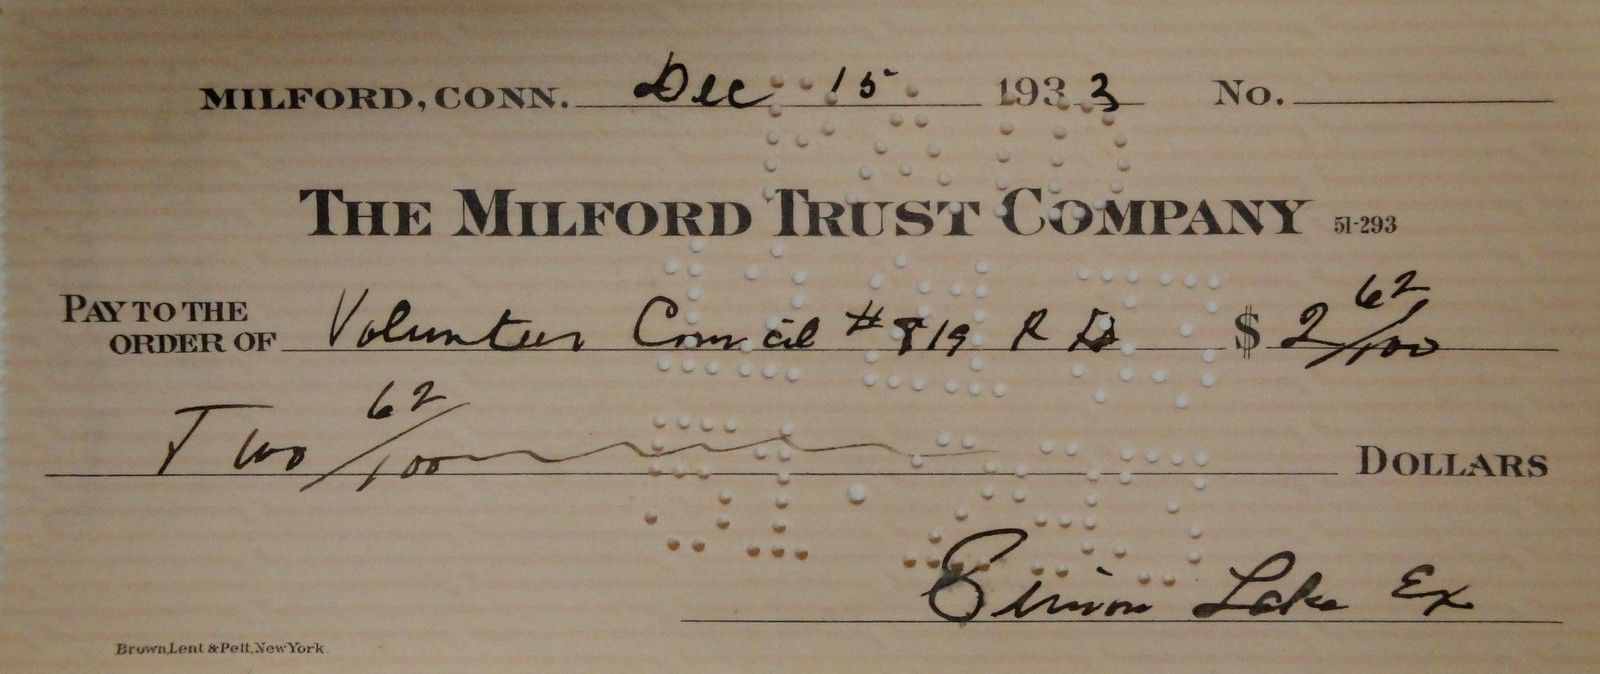 MILFORD, CONN. Dec 15 1933 No.
THE MILFORD TRUST COMPANY 51-293
PAY TO THE
ORDER OF Volunteer Council #819 R $ 2 62/100
Two 62/100 DOLLARS
Simon Lake Ex
Brown, Lent & Pett, New York.